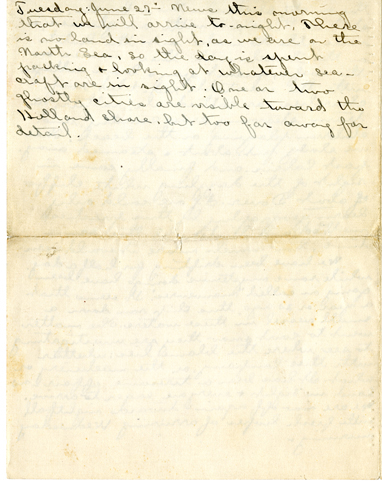 Tuesday: June 27- News this morning
that we will arrive to-night. There
is no land in sight, as we are on the
North Sea, so the day is spent
packing & looking at whatever sea-
craft are in sight. One or two
ghostly cities are visible toward the
Holland shore, but too far away for
detail.